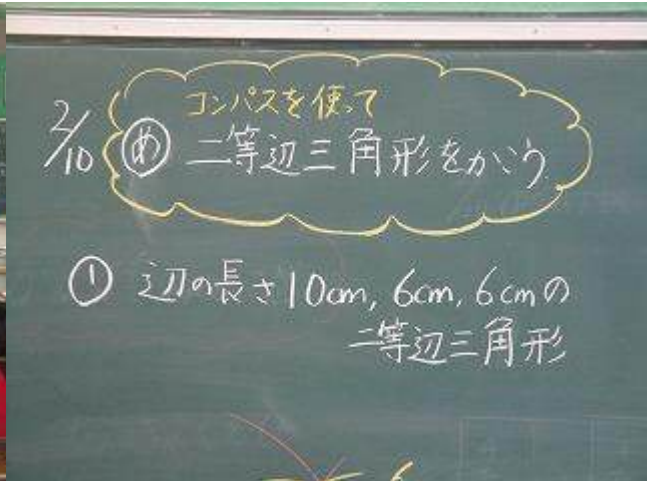 コンパスを使って
2/10 め 二等辺三角形をかこう
① 辺の長さ10cm, 6cm, 6cmの
二等辺三角形